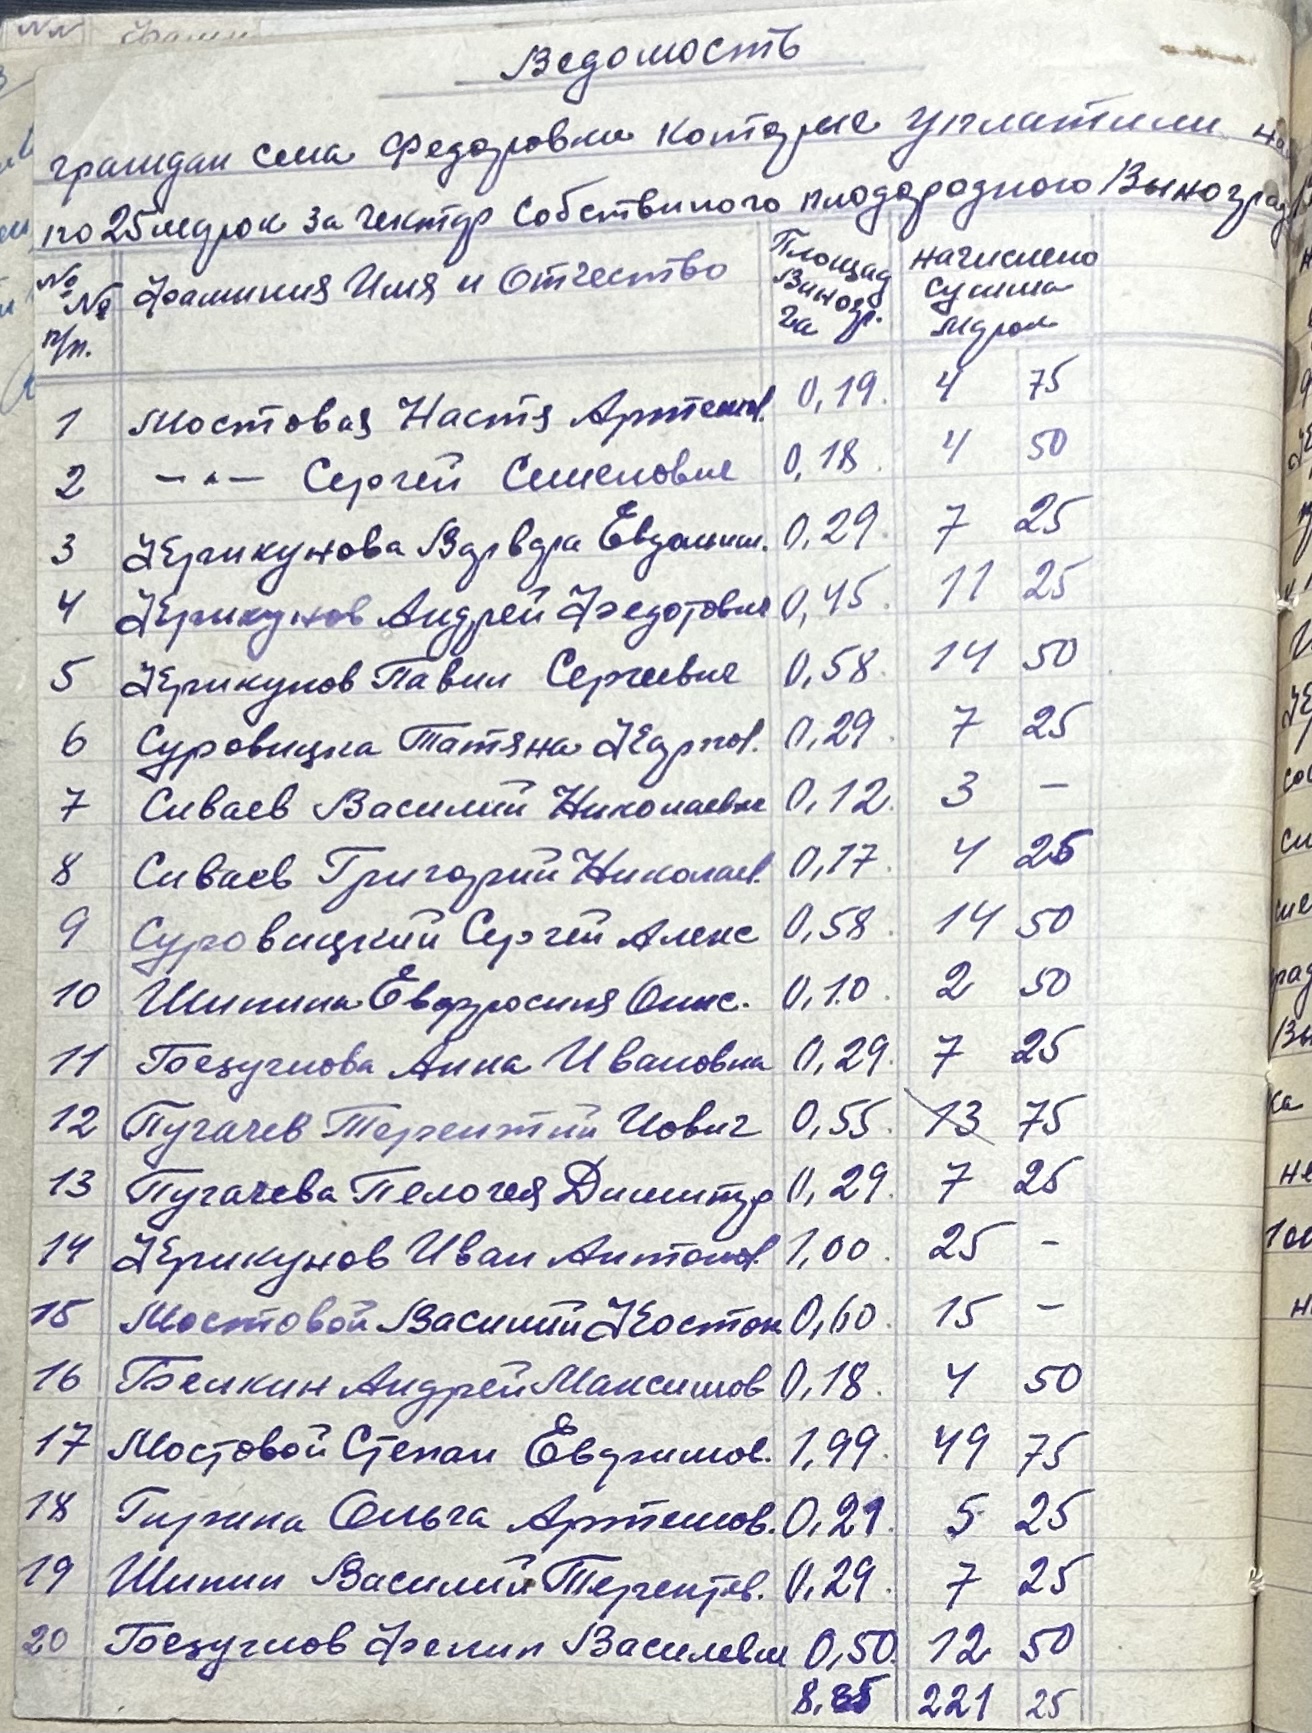 Ведомость
граждан села Федоровки которые уплатили на
по 25 марок за гектар Собственого плодородного Выноград
№ № п/п. Фамилия Имя и Отчество Площад Виногр. га начислено сумма марок
1 Мостовая Настя Артемов. 0,19. 4 75
2 —"— Сергей Семенович 0,18. 4 50
3 Крикунова Варвара Евдоким. 0,29. 7 25
4 Крикунов Андрей Федотович 0,45. 11 25
5 Крикунов Павил Сергеевич 0,58. 14 50
6 Суровицка Татяна Карпов. 0,29. 7 25
7 Сиваев Василий Николаевич 0,12. 3 —
8 Сиваев Григорий Николаев. 0,17. 4 25
9 Суровицкий Сергей Алекс 0,58. 14 50
10 Шипина Евфросиня Онис. 0,10. 2 50
11 Анна Ивановна 0,29. 7 25
12 Пугачев Терентий Иович 0,55. 13 75
13 Пугачева Пелогея Димитр 0,29. 7 25
14 Крикунов Иван Антонов. 1,00. 25 —
15 Мостовой Василий Костан 0,60. 15 —
16 Белкин Андрей Максимов 0,18. 4 50
17 Мостовой Степан Евдокимов. 1,99. 49 75
18 Ольга Артемов. 0,21. 5 25
19 Шипин Василий Терентев. 0,29. 7 25
20 Филип Василевич 0,50. 12 50
8,85 221 25